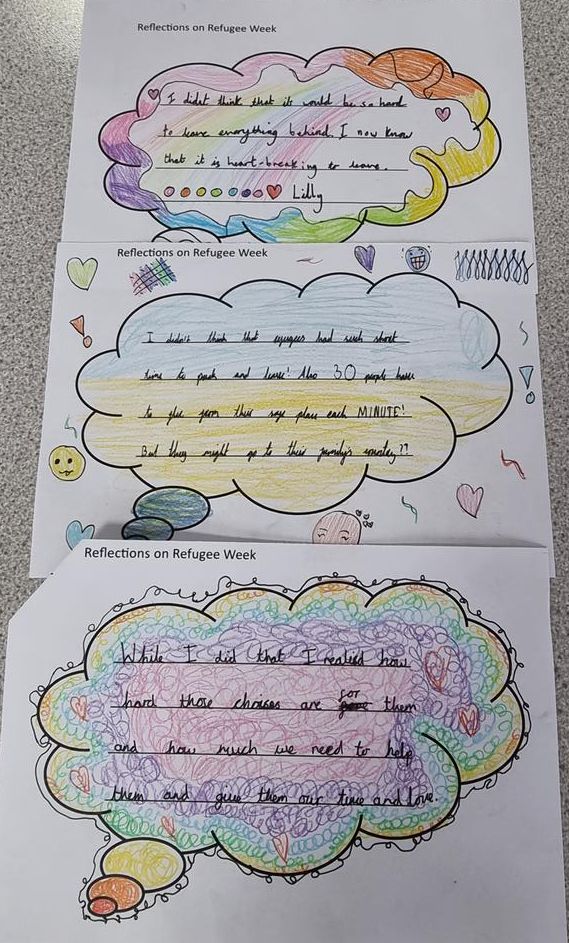 Reflections on Refugee Week
I didn't think that its would be so hard
to leave everything behind. I now know
that it is heart-breaking to leave.
Lilly
Reflections on Refugee Week
I didn't think that refugees had such short
time to pack and leave! Also 30 people have
to flee from their safe place each MINUTE!
But they might go to their family's country??
Reflections on Refugee Week
While I did that I realisd how
hard those choises are for them
and how much we need to help
them and give them our time and love.